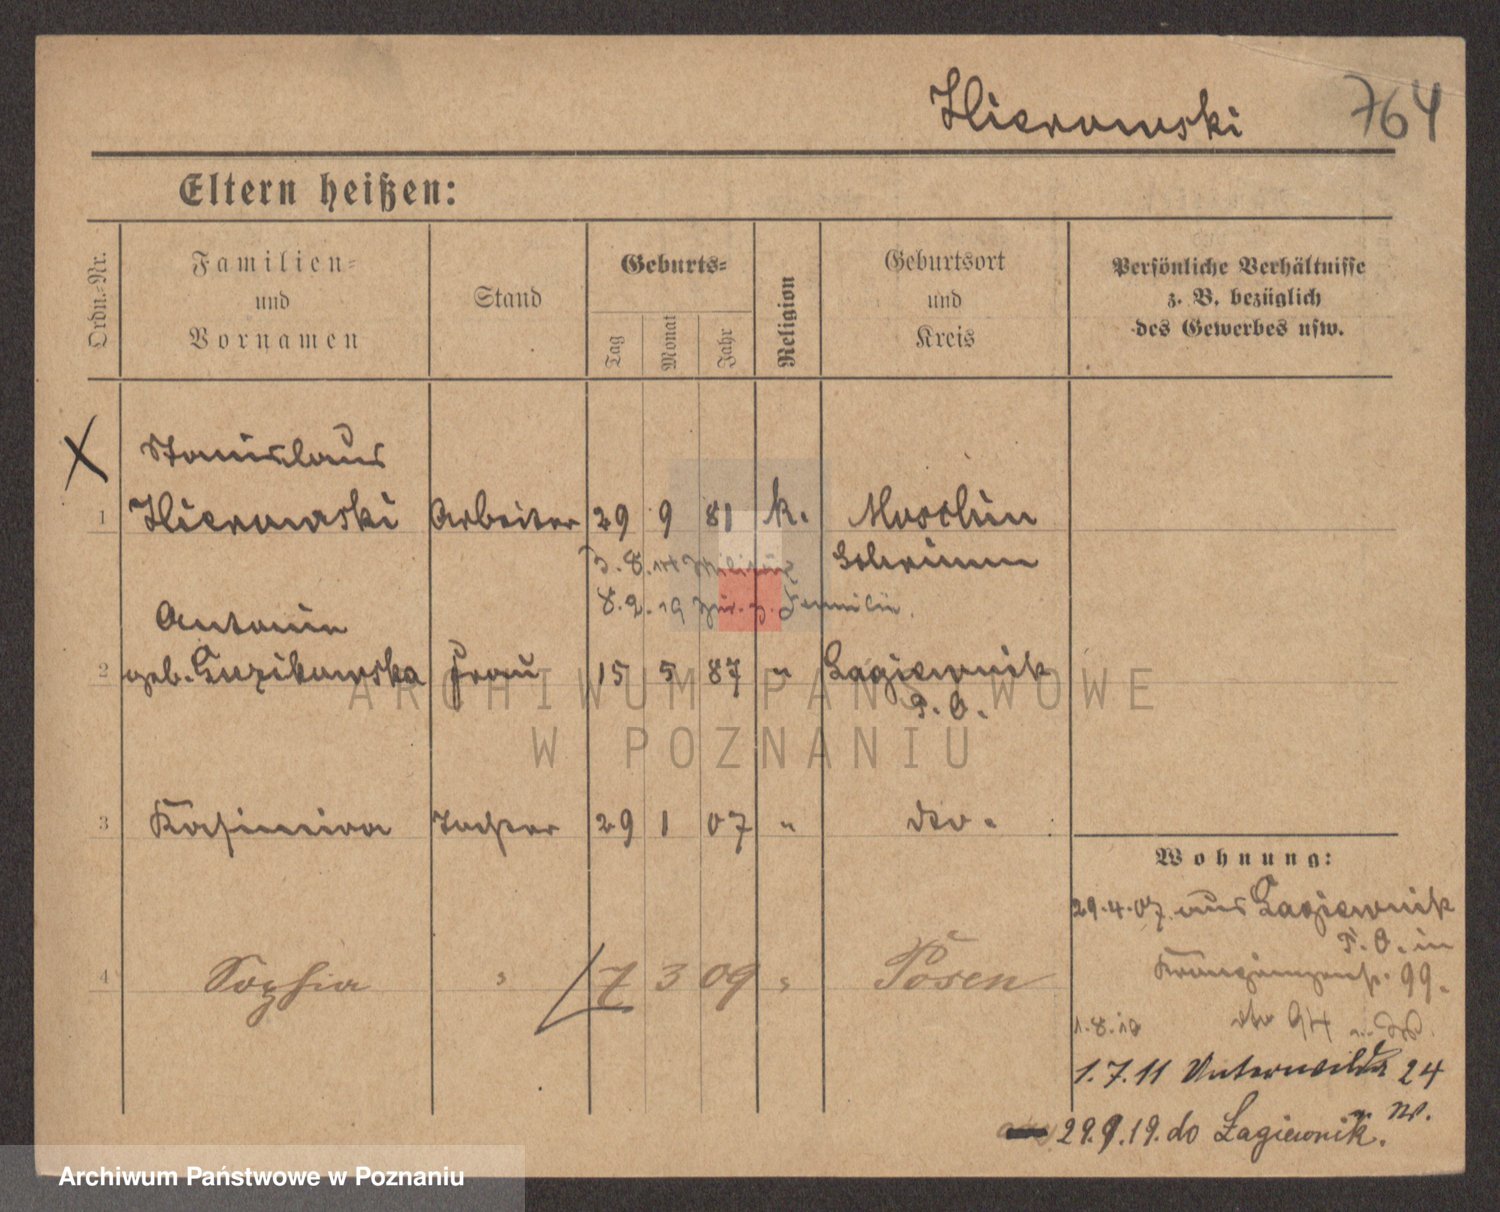 Hierowski 764
Eltern heißen:
Ordn.-Nr.
Familien-
und
Vornamen
Stand
Geburts-
Tag Monat Jahr
Religion
Geburtsort
und
Kreis
Persönliche Verhältnisse
z. B. bezüglich
des Gewerbes usw.
X Stanislaus
1 Hierowski Arbeiter 29 9 81 k. Moschin
3.8.14 Militär Schrimm
8.2.19 zur. z. Familie.
Antonie
2 geb. Guzikowska Frau 15 5 87 " Lagiewnik
P. O.
3 Kasimira Tochter 29 1 07 " dto.
Wohnung:
29.4.07 aus Lagiewnik
P. O. in
4 Sophia " 7 3 09 " Posen
99.
1.8.10 dto 94
1.7.11 Unterwilda 24
W.
29.9.19. do Łagiewnik.
ARCHIWUM PAŃSTWOWE
W POZNANIU
Archiwum Państwowe w Poznaniu